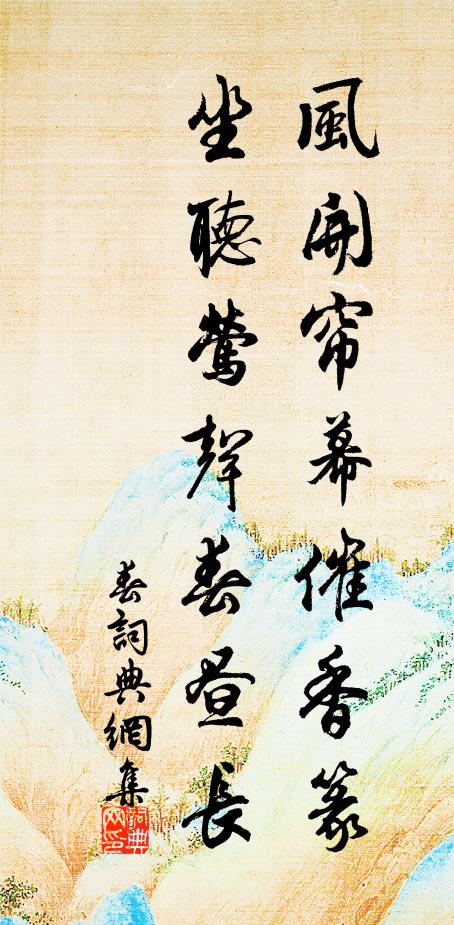 風開帘幕催香篆
坐聽鶯聲春昼長
春詞典網集
詞典
网印